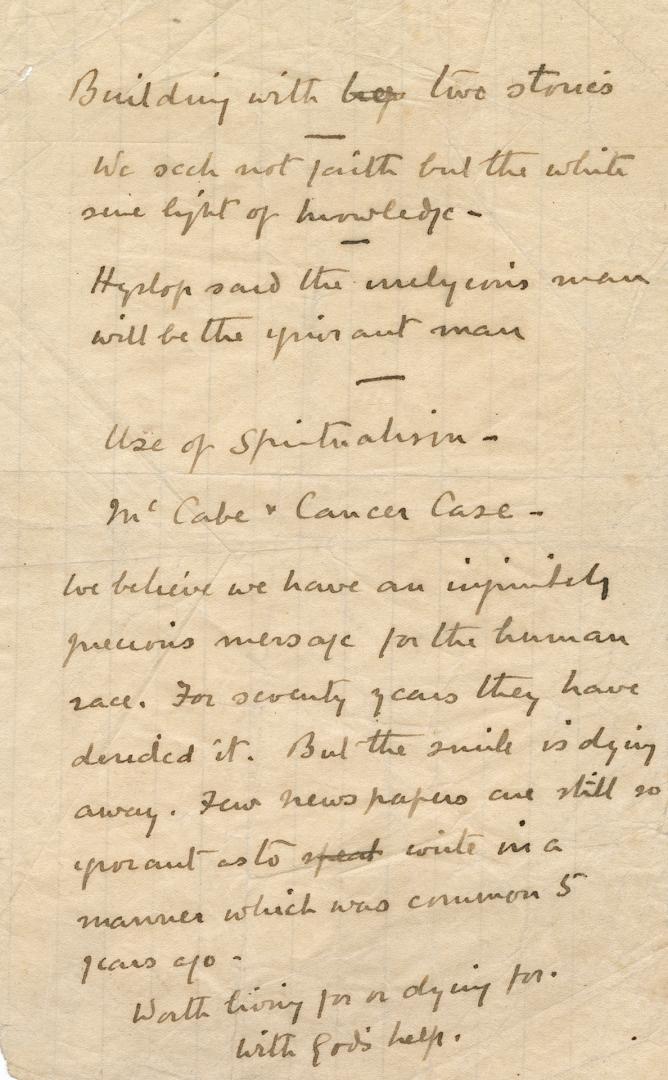 Building with two stories
We seek not faith but the white
sene light of knowledge -
Hyslop said the irreligious man
will be the ignorant man
Use of Spiritualism -
Mc Cabe & Cancer Case -
We believe we have an infinitely
precious message for the human
race. For seventy years they have
derided it. But the smile is dying
away. Few newspapers are still so
ignorant as to speak write in a
manner which was common 5
years ago -
Worth living for or dying for.
With God's help.